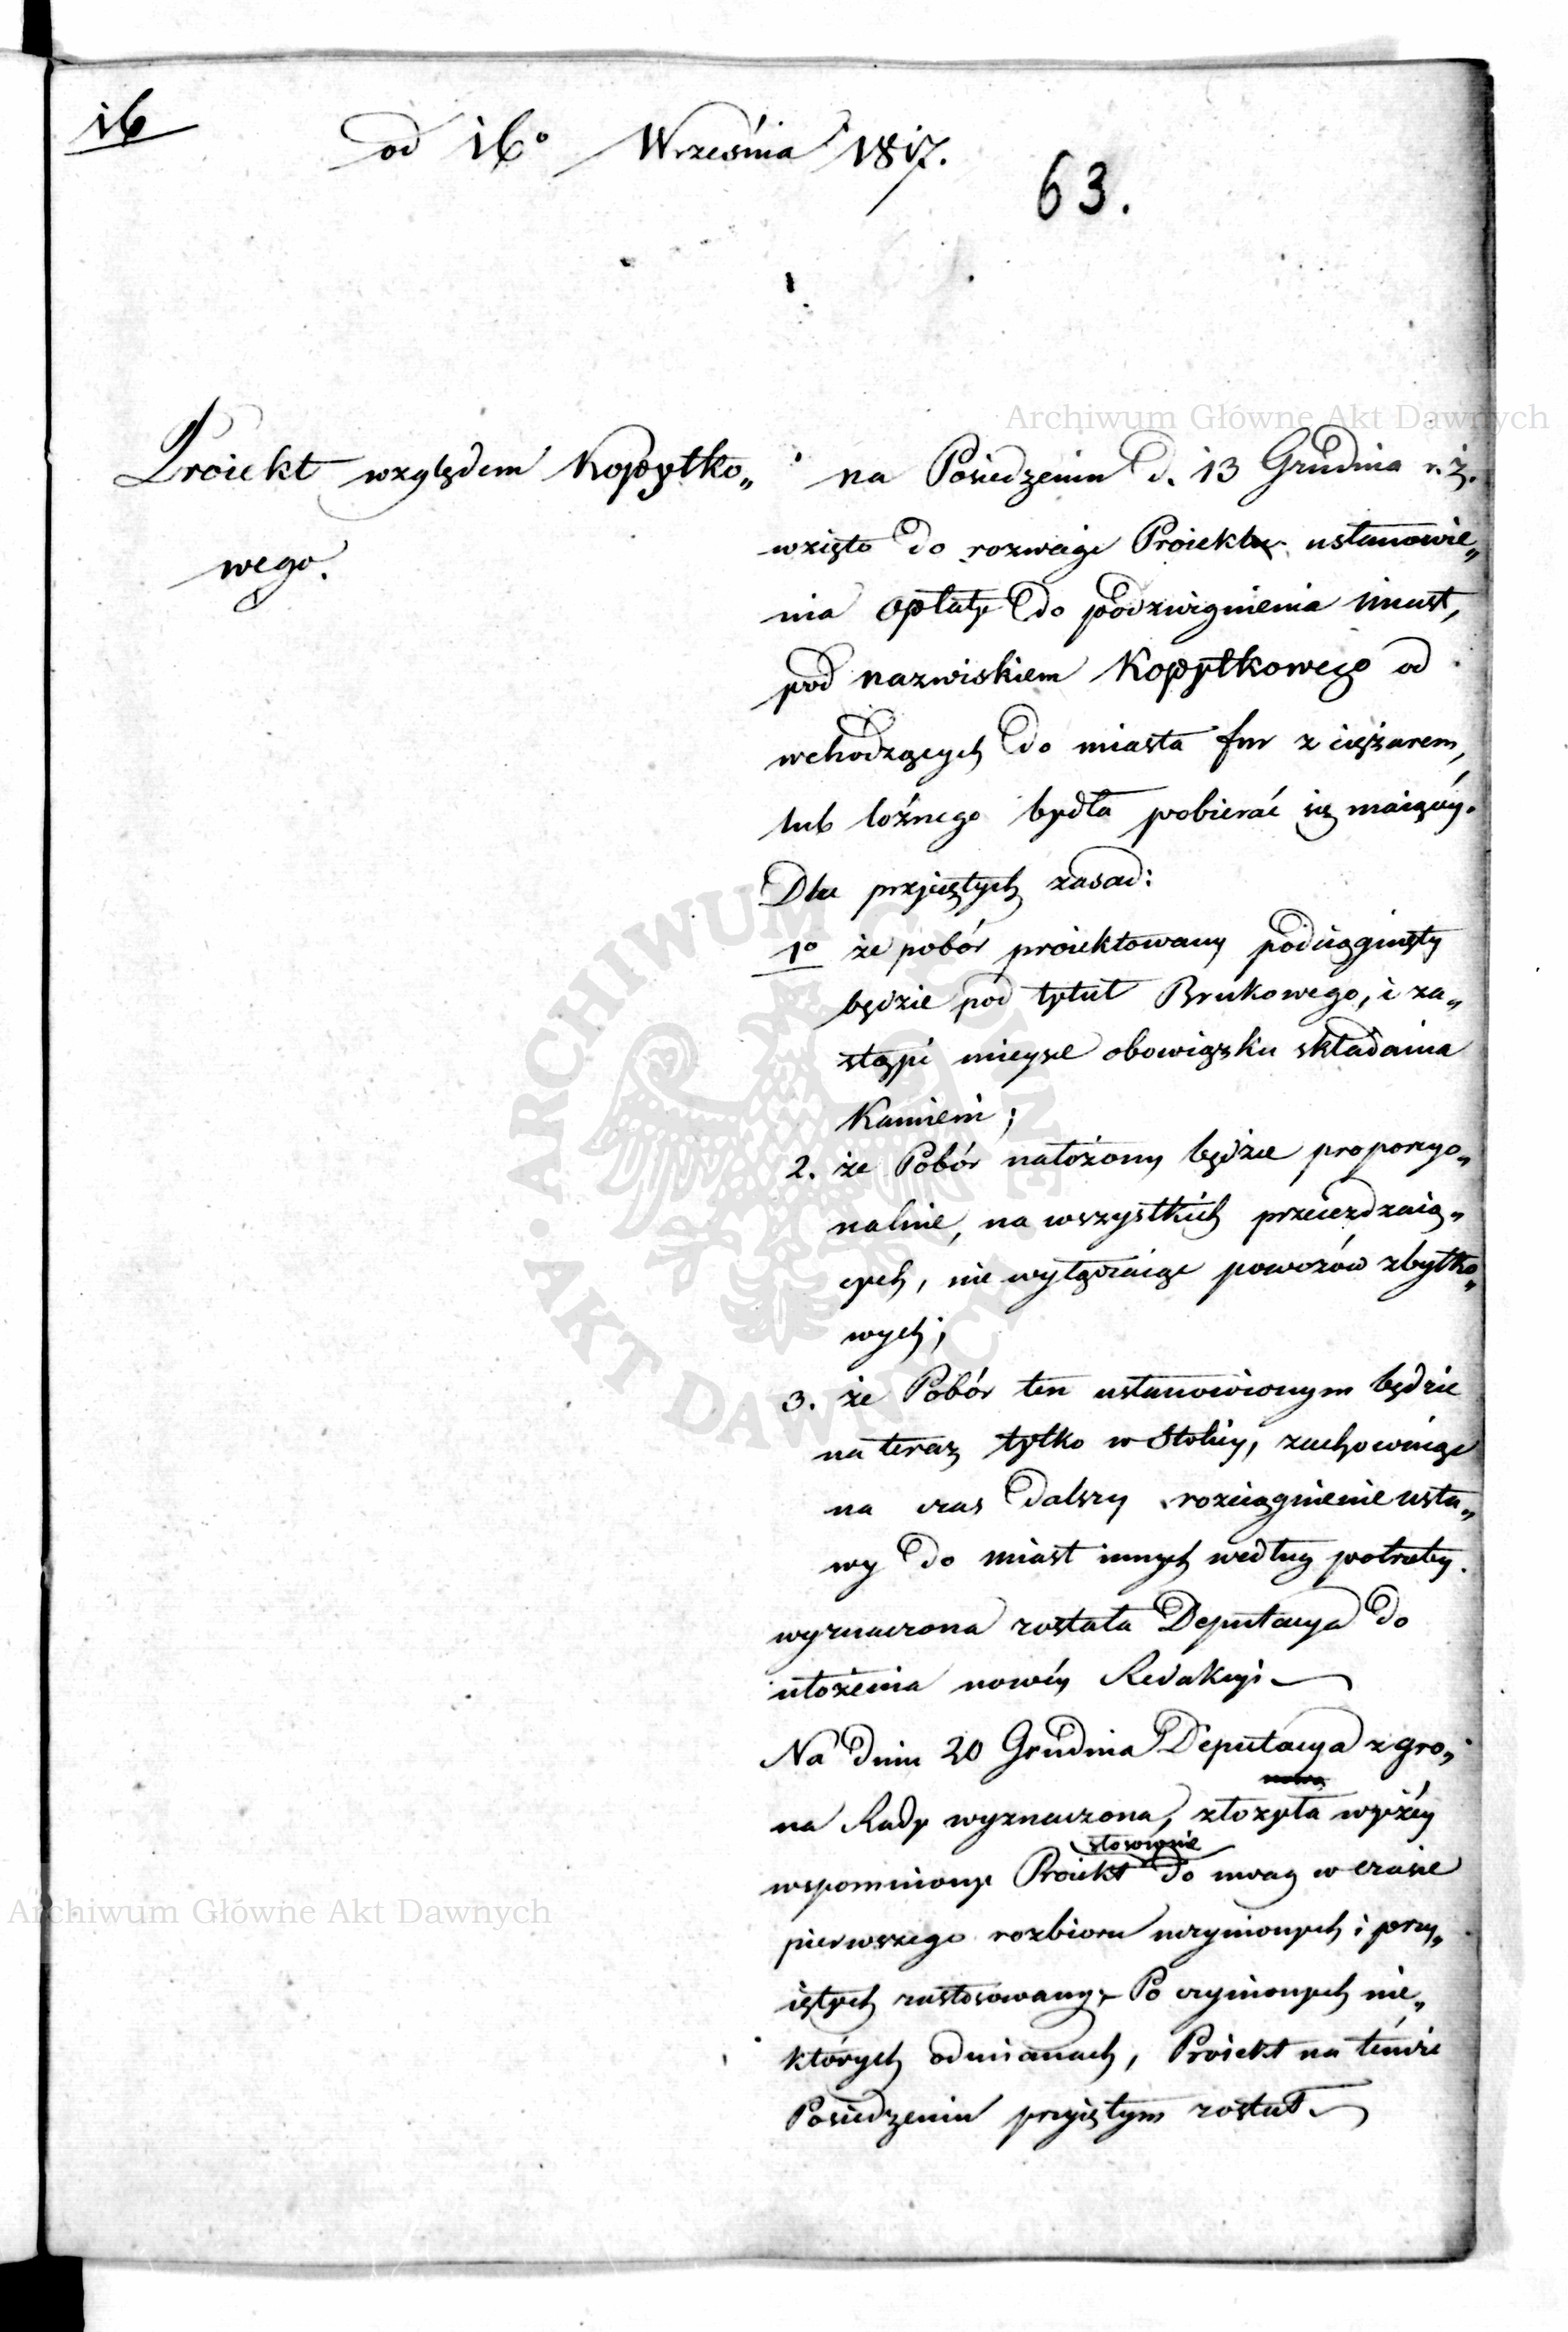 16
od 16° Września 1817.
63.
Archiwum Główne Akt Dawnych
Proiekt względem Kopytko„
wego.
na Posiedzeniu d. 13 Grudnia r. z.
wzięto do rozwagi Proiekt ustanowie„
nia opłaty do podzwignienia miast,
pod nazwiskiem Kopytkowego od
wchodzących do miasta fur z ciężarem,
lub loźnego bydła pobierać się maiącéy.
Dla przyiętych zasad:
1° że pobór proiektowany podciągnięty
będzie pod tytuł Brukowego, i za„
stąpi mieysce obowiązku składania
Kamieni;
2. że Pobór nałożony będzie proporcyo„
nalnie, na wszystkich przeieżdzaią„
cych, nie wyłączaiąc powozów zbytko„
wych;
3. że Pobór ten ustanowionym będzie
na teraz tylko w Stolicy, zachowuiąc
na czas dalszy rozciągnienie usta„
wy do miast innych według potrzeby.
wyznaczona została Deputacya do
ułożenia nowéy Redakcyi
Na dniu 20 Grudnia Deputacya z gro„
nowo
na Rady wyznaczona, złożyła wyżéy
stosownie
wspomniony Proiekt do uwag w czasie
pierwszego rozbioru uczynionych i przy„
iętych zastosowany. Po czynionych nie„
których odmianach, Proiekt na témże
Posiedzeniu przyiętym został.
Archiwum Główne Akt Dawnych
ARCHIWUM GŁÓWNE
AKT DAWNYCH